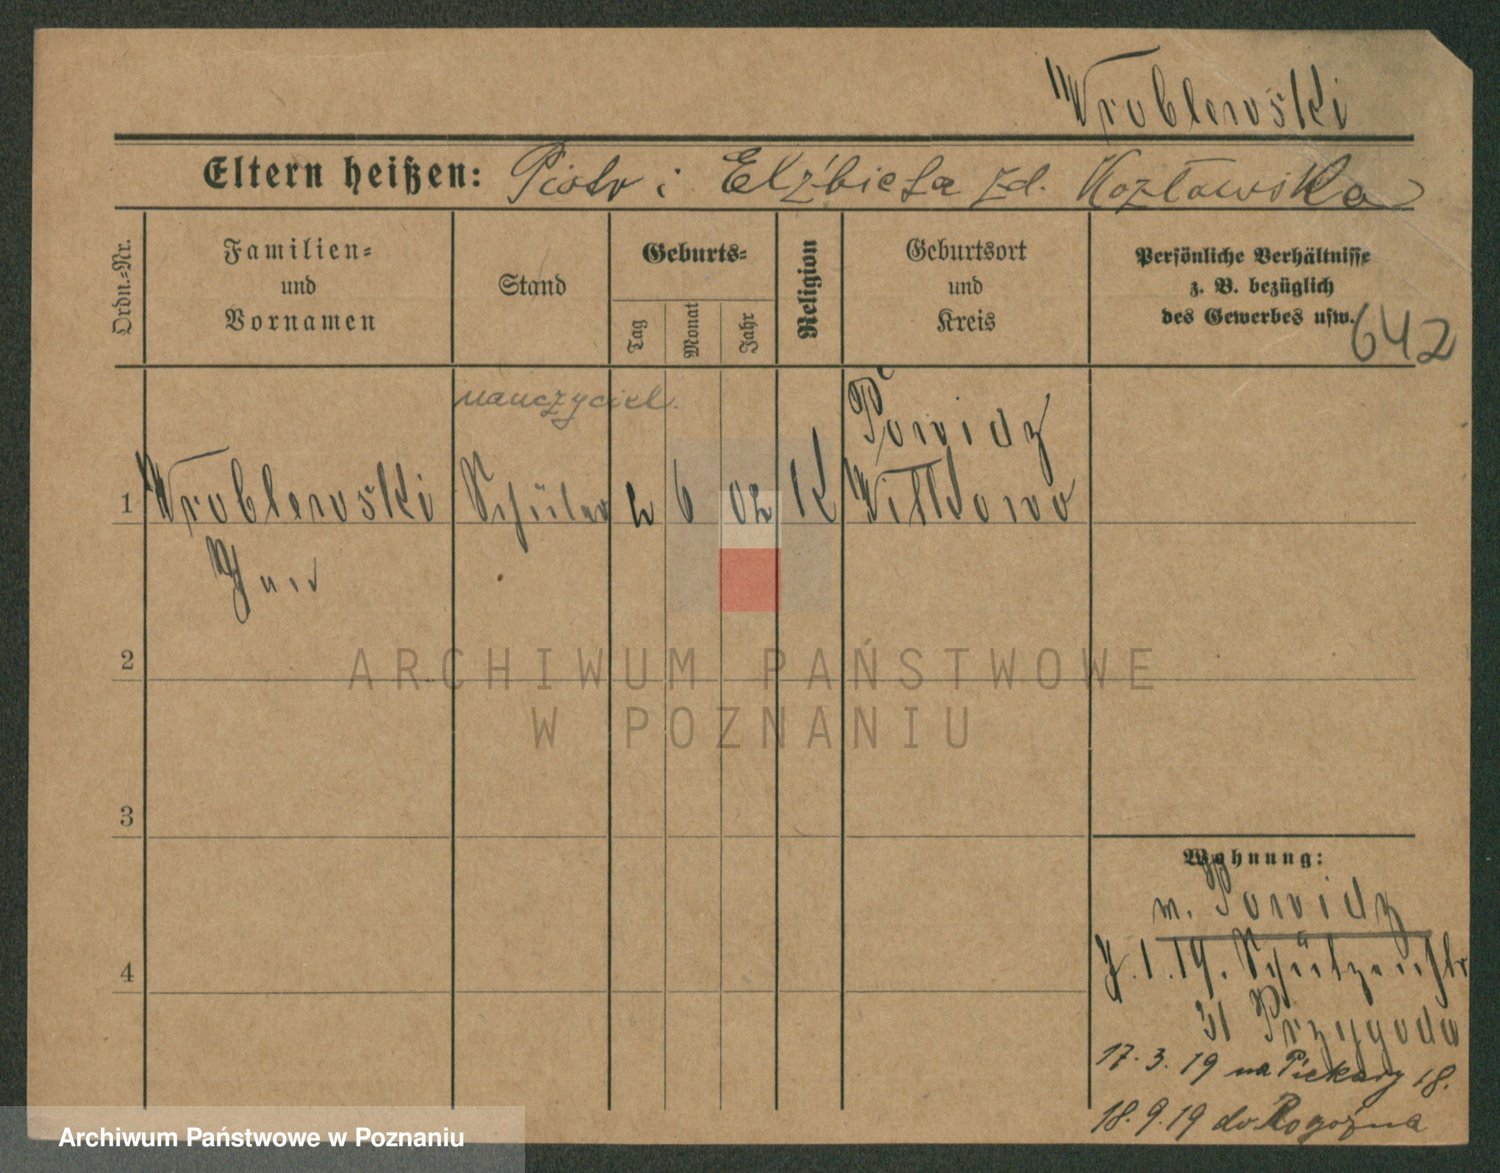 Wroblewski
Eltern heißen: Piotr i Elżbieta zd. Kozłowska
Ordn.-Nr.
Familien-
und
Vornamen
Stand
Geburts-
Tag
Monat
Jahr
Religion
Geburtsort
und
Kreis
Persönliche Verhältnisse
z. B. bezüglich
des Gewerbes usw.
642
nauczyciel.
Powidz
1 Wroblewski Schüler 2 6 02 K Wittkowo
Jan
2
3
4
ARCHIWUM PAŃSTWOWE
W POZNANIU
Wohnung:
Powidz
1.19. Schützenstr
31 Przygoda
17.3.19 na Piekary 18.
18.9.19 do Rogoźna
Archiwum Państwowe w Poznaniu